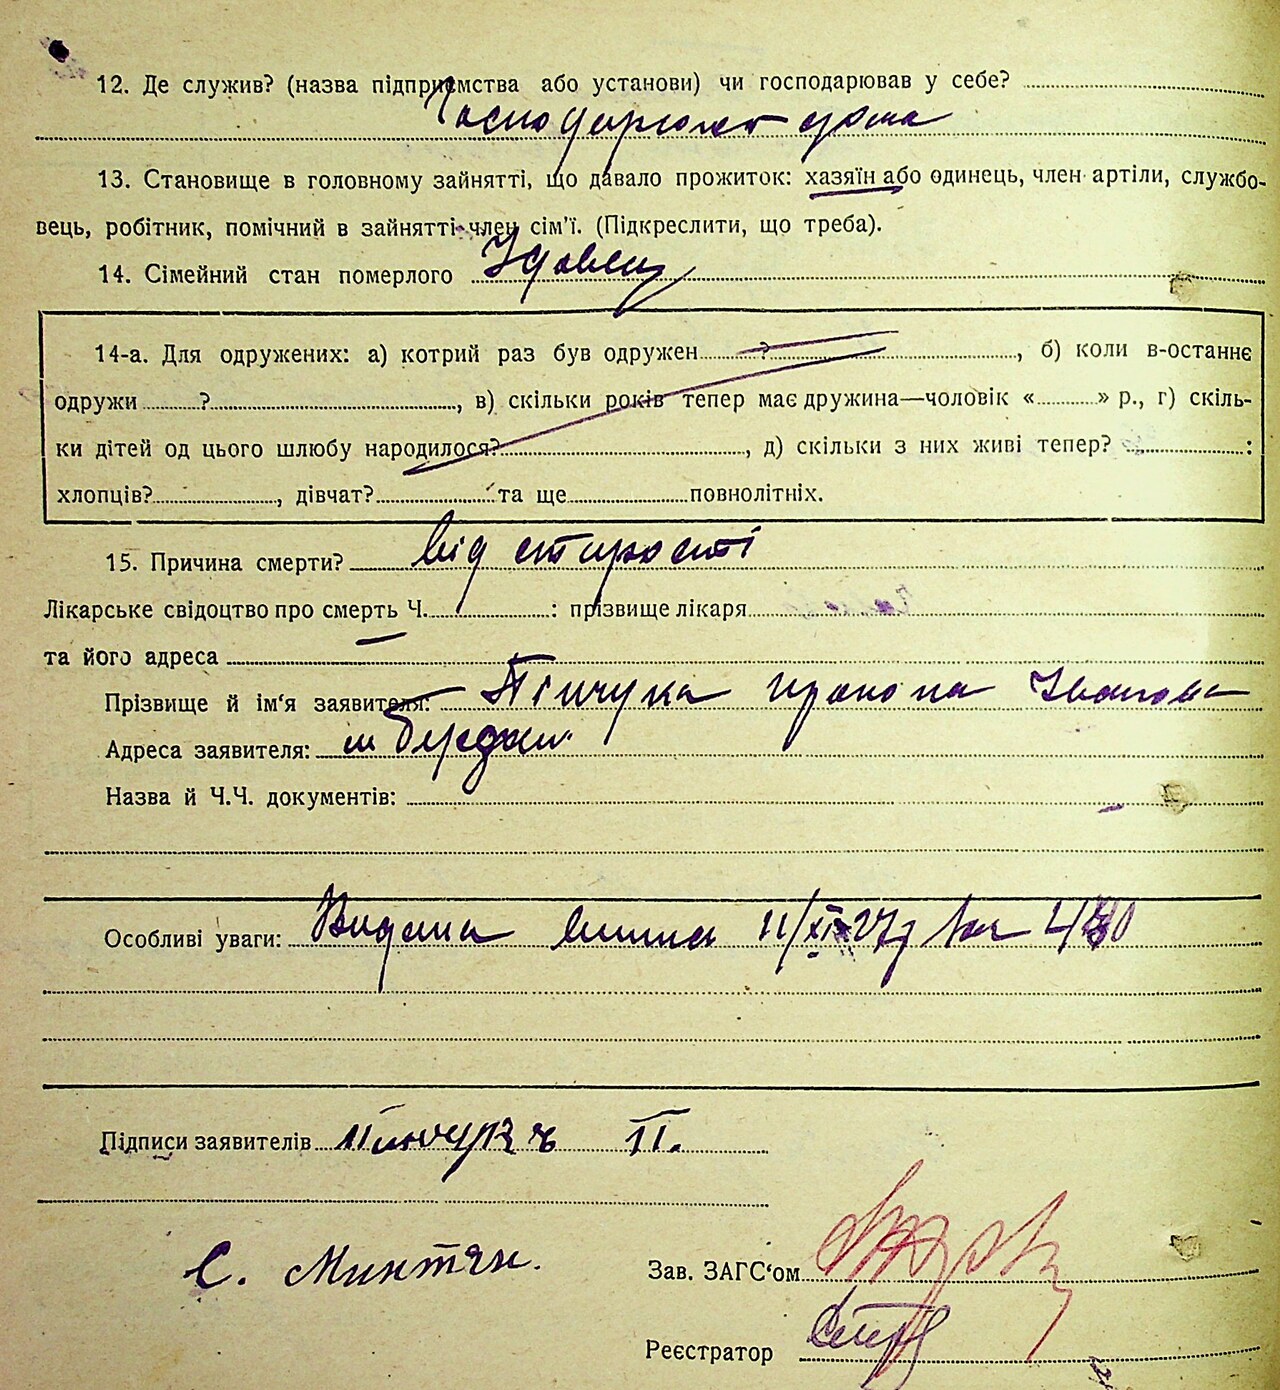 12. Де служив? (назва підприємства або установи) чи господарював у себе?
дома
13. Становище в головному зайнятті, що давало прожиток: хазяїн або одинець, член артілі, службо-
вець, робітник, помічний в зайнятті член сім'ї. (Підкреслити, що треба).
14. Сімейний стан померлого Удовец
14-а. Для одружених: а) котрий раз був одружен ?, б) коли в-останнє
одружи ?, в) скільки років тепер має дружина—чоловік « » р., г) скіль-
ки дітей од цього шлюбу народилося?, д) скільки з них живі тепер? :
хлопців?, дівчат? та ще повнолітніх.
15. Причина смерти? від старості
Лікарське свідоцтво про смерть Ч. : прізвище лікаря
та його адреса
Прізвище й ім'я заявителя:
Адреса заявителя: м
Назва й Ч.Ч. документів:
Особливі уваги: Видана 11/XI-27
Підписи заявителів Пинчук П.
С. Минтян.
Зав. ЗАГС'ом
Реєстратор